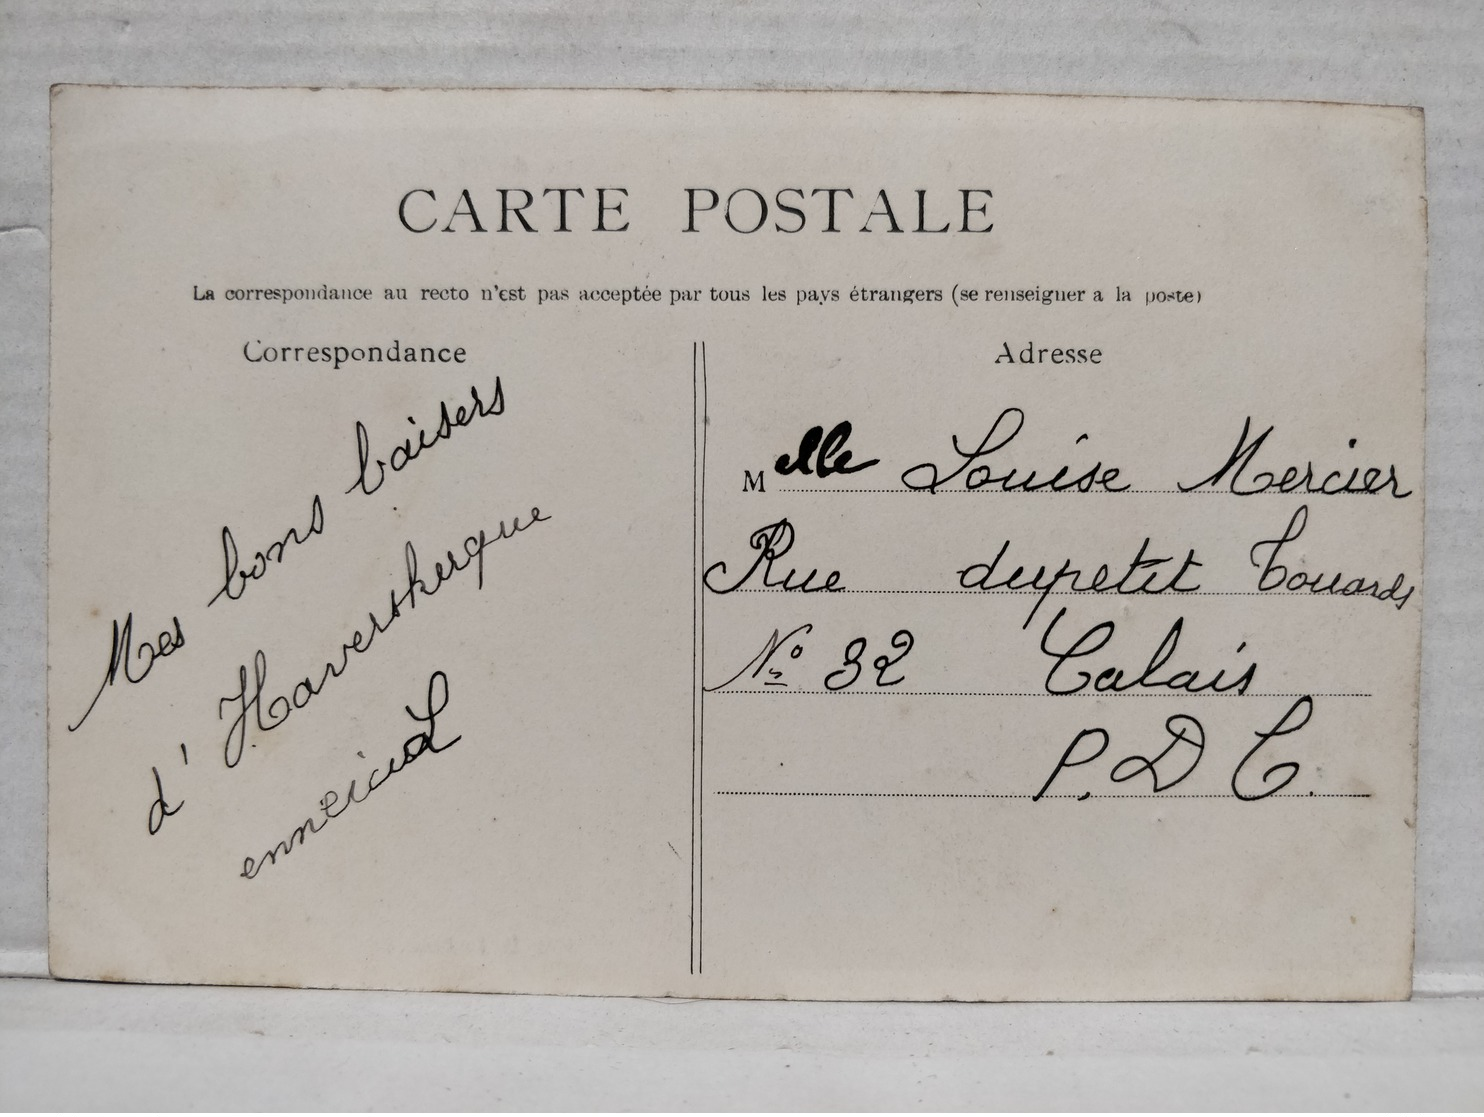 CARTE POSTALE
La correspondance au recto n'est pas acceptée par tous les pays étrangers (se renseigner a la poste)
Correspondance
Mes bons baisers
d'Haverskerque
Adresse
Melle Louise Mercier
Rue dupetit Touards
No 32 Calais
P. D C.